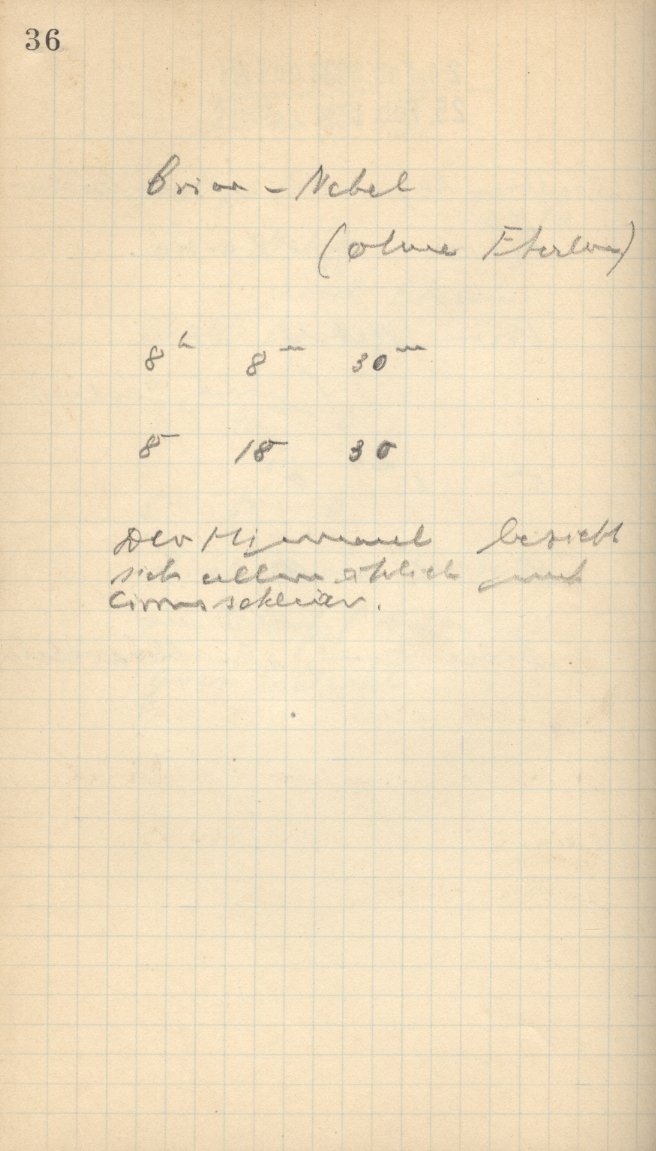 36
Orion - Nebel
(ohne
8h 8m 30m
8 18 30
Der Himmel bezieht
sich allmählich mit
Cirrusschleier.